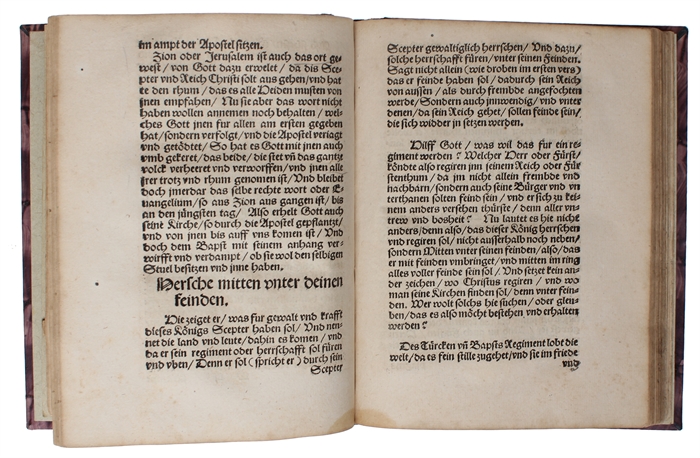 im ampt der Apostel sitzen.
Zion oder Jerusalem ist auch das ort ge-
west/ von Gott dazu erwelet/ da dis Sce-
pter vnd Reich Christi solt aus gehen/ vnd hat
te den rhum/ das es alle Heiden musten von
jnen empfahen/ Nu sie aber das wort nicht
haben wollen annemen noch behalten/ wel-
ches Gott jnen fur allen am ersten gegeben
hat/ sondern verfolgt/ vnd die Apostel veriagt
vnd getödtet/ So hat es Gott mit jnen auch
vmb gekeret/ das beide/ die stet vñ das gantz
volck verheret vnd verworffen/ vnd jnen alle
jrer trotz vnd rhum genomen ist/ Vnd bleibet
doch jmerdar das selbe rechte wort oder E-
uangelium/ so aus Zion aus gangen ist/ bis
an den jüngsten tag/ Also erhelt Gott auch
seine Kirche/ so durch die Apostel gepflantzt/
vnd von jnen bis auff vns komen ist/ Vnd
doch dem Bapst mit seinem anhang ver-
wirfft vnd verdampt/ ob sie wol den selbigen
Stuel besitzen vnd jnne haben.
Hersche mitten vnter deinen
feinden.
Die zeiget er/ was fur gewalt vnd krafft
dieses Königs Scepter haben sol/ Vnd nen-
net die land vnd leute/ dahin es komen/ vnd
da er sein regiment oder herrschafft sol füren
vnd vben/ Denn er sol (spricht er) durch sein
Scepter
Scepter gewaltiglich herrschen/ Vnd dazu/
solche herrschafft füren/ vnter seinen Feinden.
Sagt nicht allein (wie droben im ersten vers)
das er feinde haben sol/ dadurch sein Reich
von aussen/ als durch frembde angefochten
werde/ Sondern auch jnnwendig/ vnd vnter
denen/ da sein Reich gehet/ sollen feinde sein/
die sich widder jn setzen werden.
Hilff Gott/ was wil das fur ein re-
giment werden? Welcher Herr oder Fürst/
könde also regiren jnn seinem Reich oder Für
stenthum/ da jm nicht allein frembde vnd
nachbarn/ sondern auch seine Bürger vnd vn
terthanen solten feind sein/ vnd er sich zu kei-
nem anders versehen thürste/ denn aller vn-
trew vnd bosheit? Nu lautet es hie nicht
anders/ denn/ das dieser König herrschen
vnd regiren sol/ nicht ausserhalb noch neben/
sondern Mitten vnter seinen feinden/ also/ das
er mit feinden vmbringet/ vnd mitten im ring
alles voller feinde sein sol/ Vnd setzet kein an-
der zeichen/ wo Christus regiren/ vnd wo
man seine Kirchen finden sol/ denn vnter fein-
den. Wer wolt solchs hie suchen/ oder gleu-
ben/ das es also möcht bestehen vnd erhalten
werden?
Des Türcken vñ Bapsts Regiment lobt die
welt/ da es fein stille zugehet/ vnd sie im friede
vnd